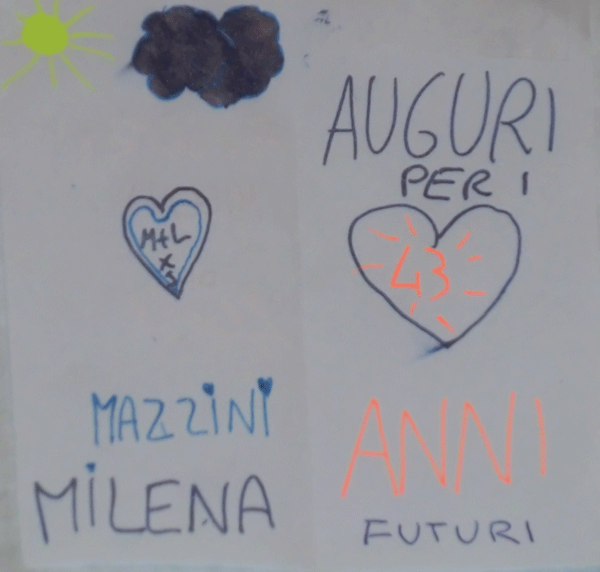 M+L
x
S
MAZZiNi
MiLENA
AUGURI
PER I
43
ANNI
FUTURI